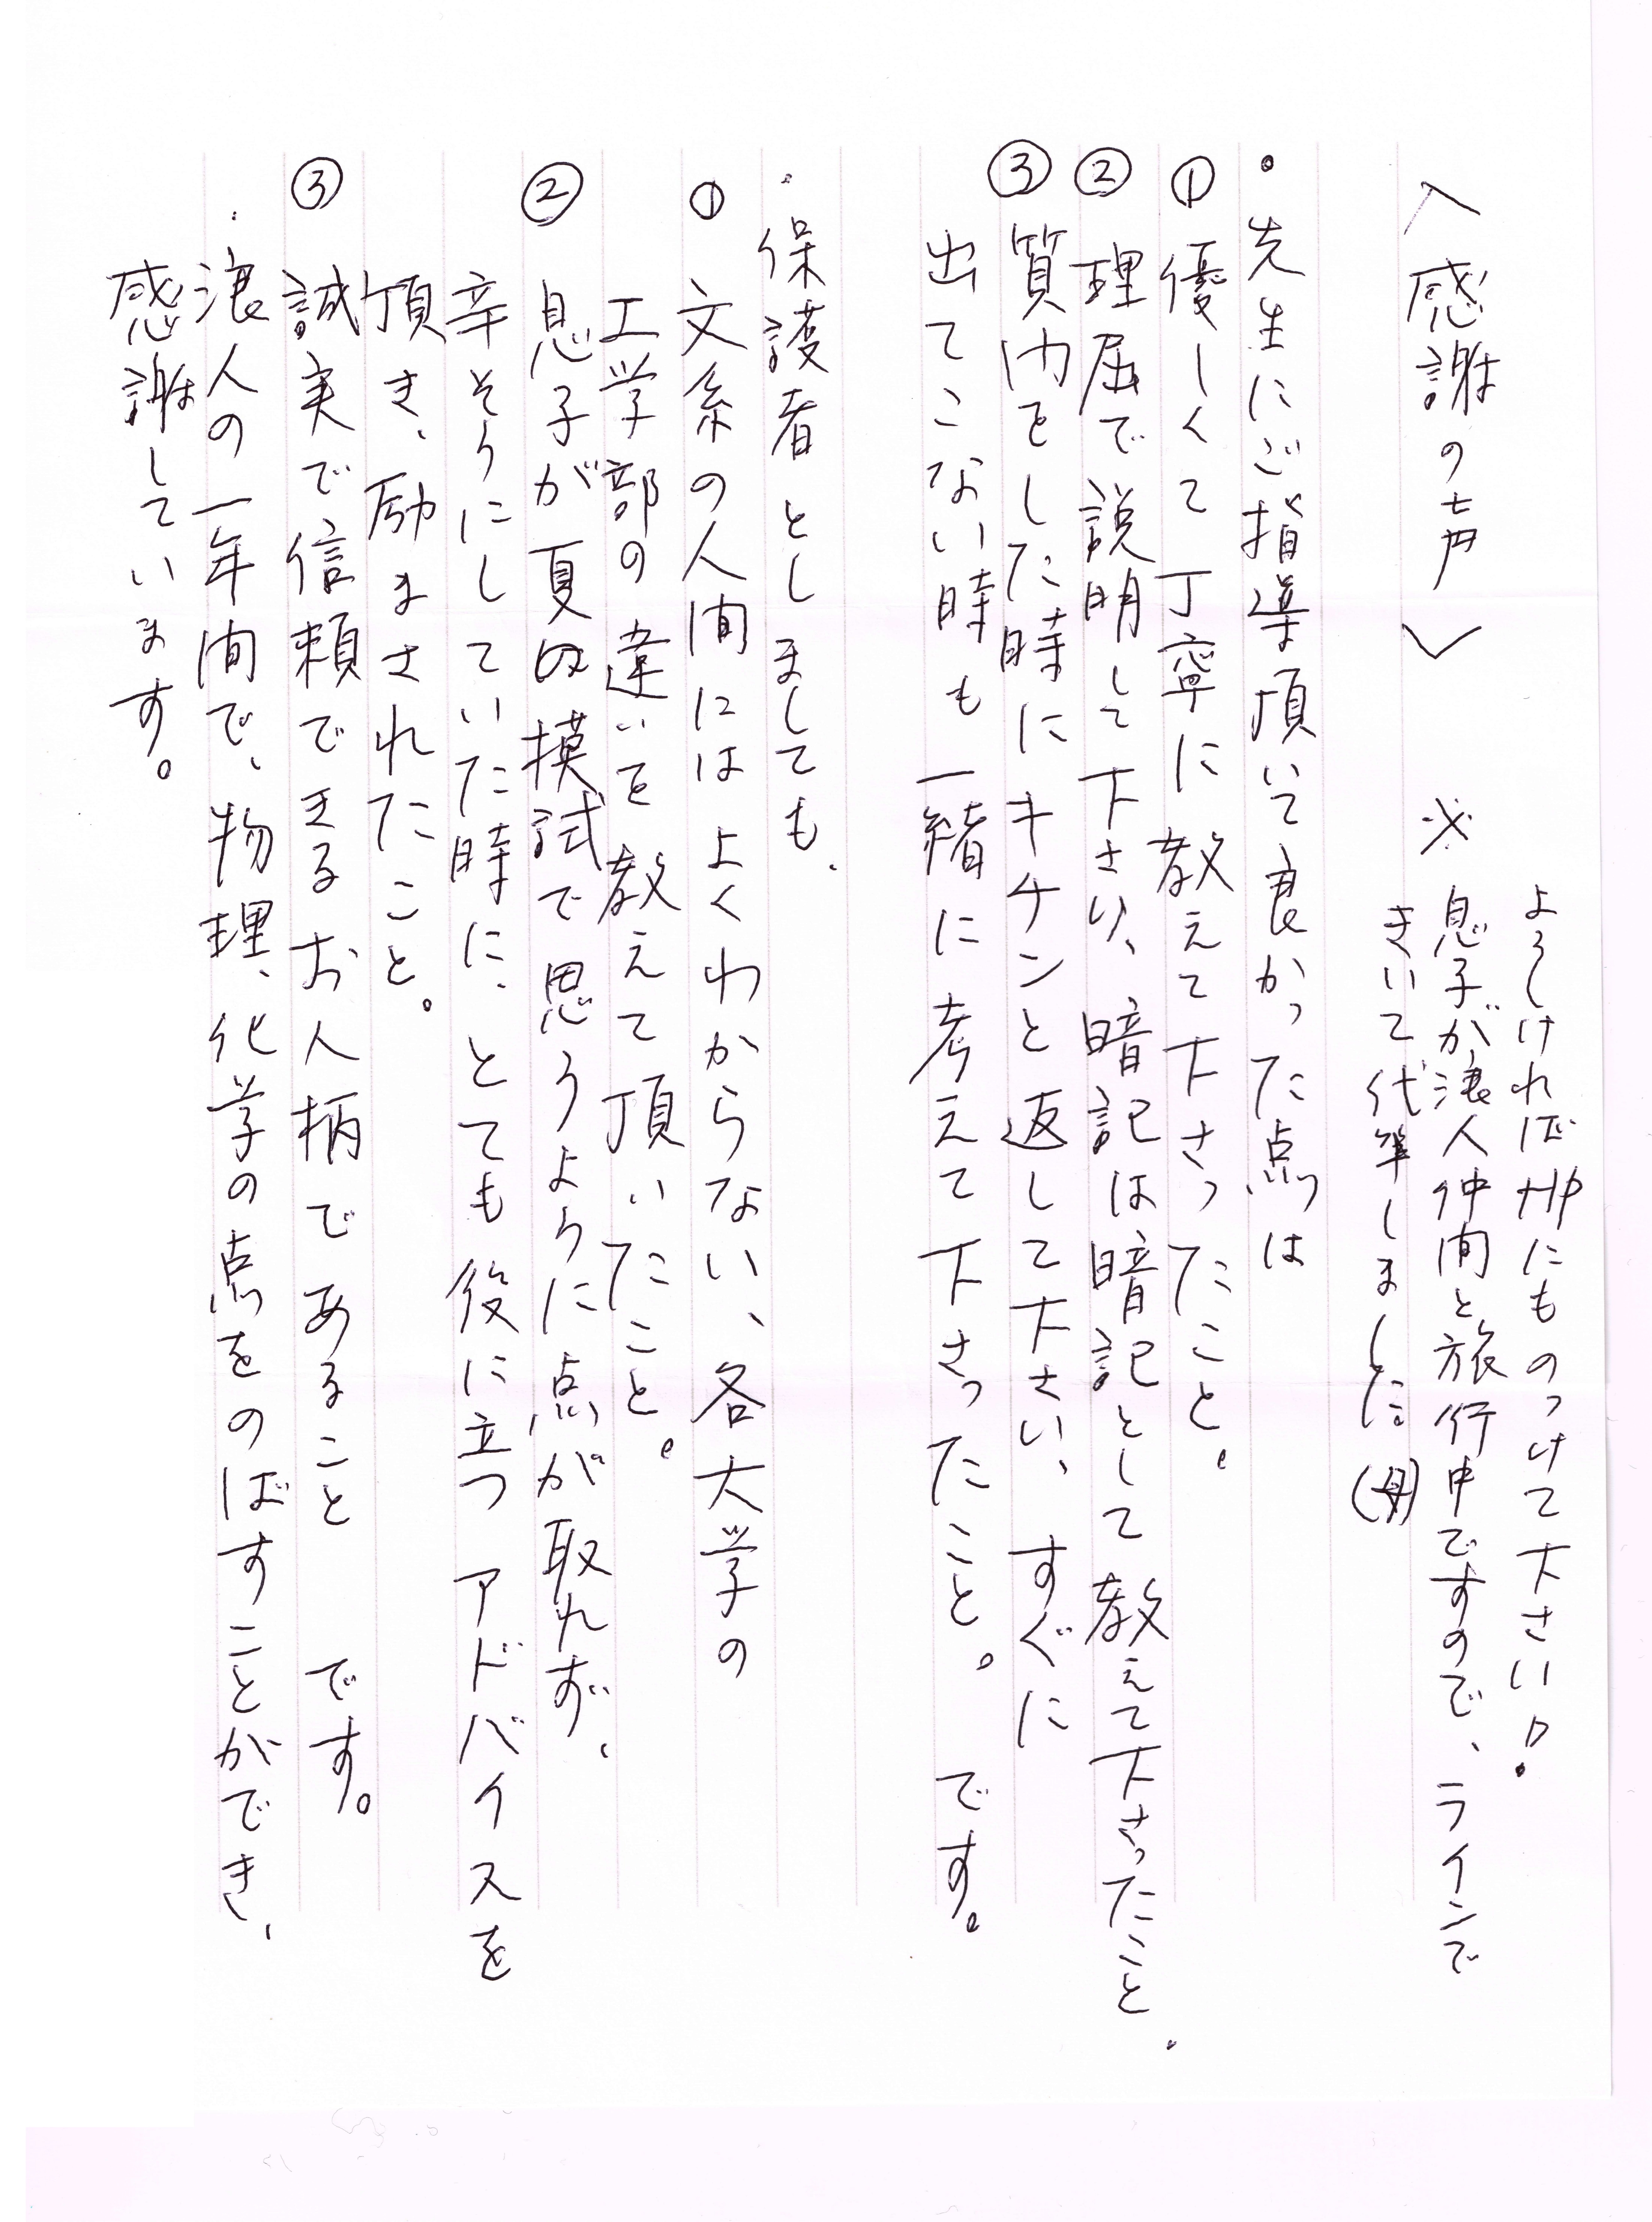 よろしければHPにものっけて下さい!
〈感謝の声〉 ※息子が浪人仲間と旅行中ですので、ラインで
きいて代筆しました(母)
・先生にご指導頂いて良かった点は
① 優しくて丁寧に教えて下さったこと。
② 理屈で説明して下さり、暗記は暗記として教えて下さったこと.
③ 質内をした時にキチンと返して下さい、すぐに
出てこない時も一緒に考えて下さったこと。です。
・保護者としましても、
① 文系の人間にはよくわからない、各大学の
工学部の違いを教えて頂いたこと。
② 息子が夏の模試で思うように点が取れず、
辛そうにしていた時に、とても役に立つアドバイスを
頂き、励まされたこと。
③ 誠実で信頼できるお人柄であること です。
・浪人の一年間で、物理、化学の点をのばすことができ、
感謝しています。